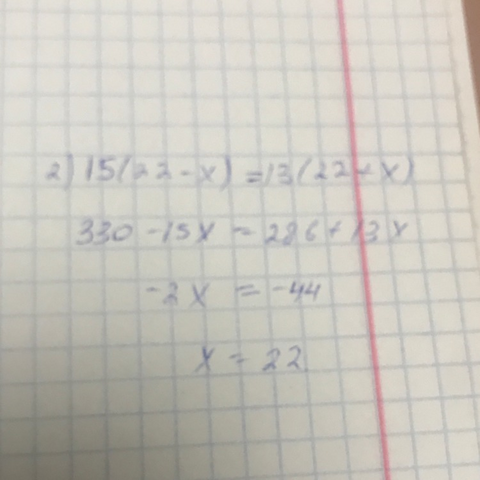 2) 15(22 - x) = 13(22 + x)
330 - 15x = 286 + 13x
-2x = -44
x = 22